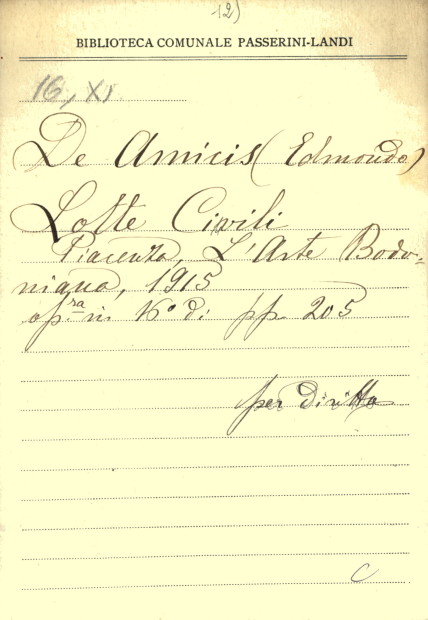 12)
BIBLIOTECA COMUNALE PASSERINI-LANDI
16, XI
De Amicis (Edmondo)
Lotte Civili
Piacenza, L'Arte Bodo-
niana, 1915
op.ra in 16° di pp. 205
per diritto
C